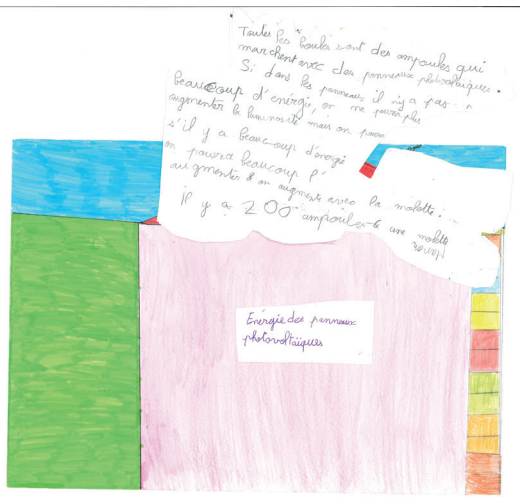 Toutes les boules sont des ampoules qui
marchent avec des panneaux photovoltaiques.
Si dans les panneaux il n'y a pas
beaucoup d'énergie, on ne pourra plus
augmenter la luminosité mais on pourra
s'il y a beaucoup d'énergie
on pourra beaucoup
augmenter & on augmente avec la molette...
il y a 200 ampoules & une molette
Energie des panneaux
photovoltaïques